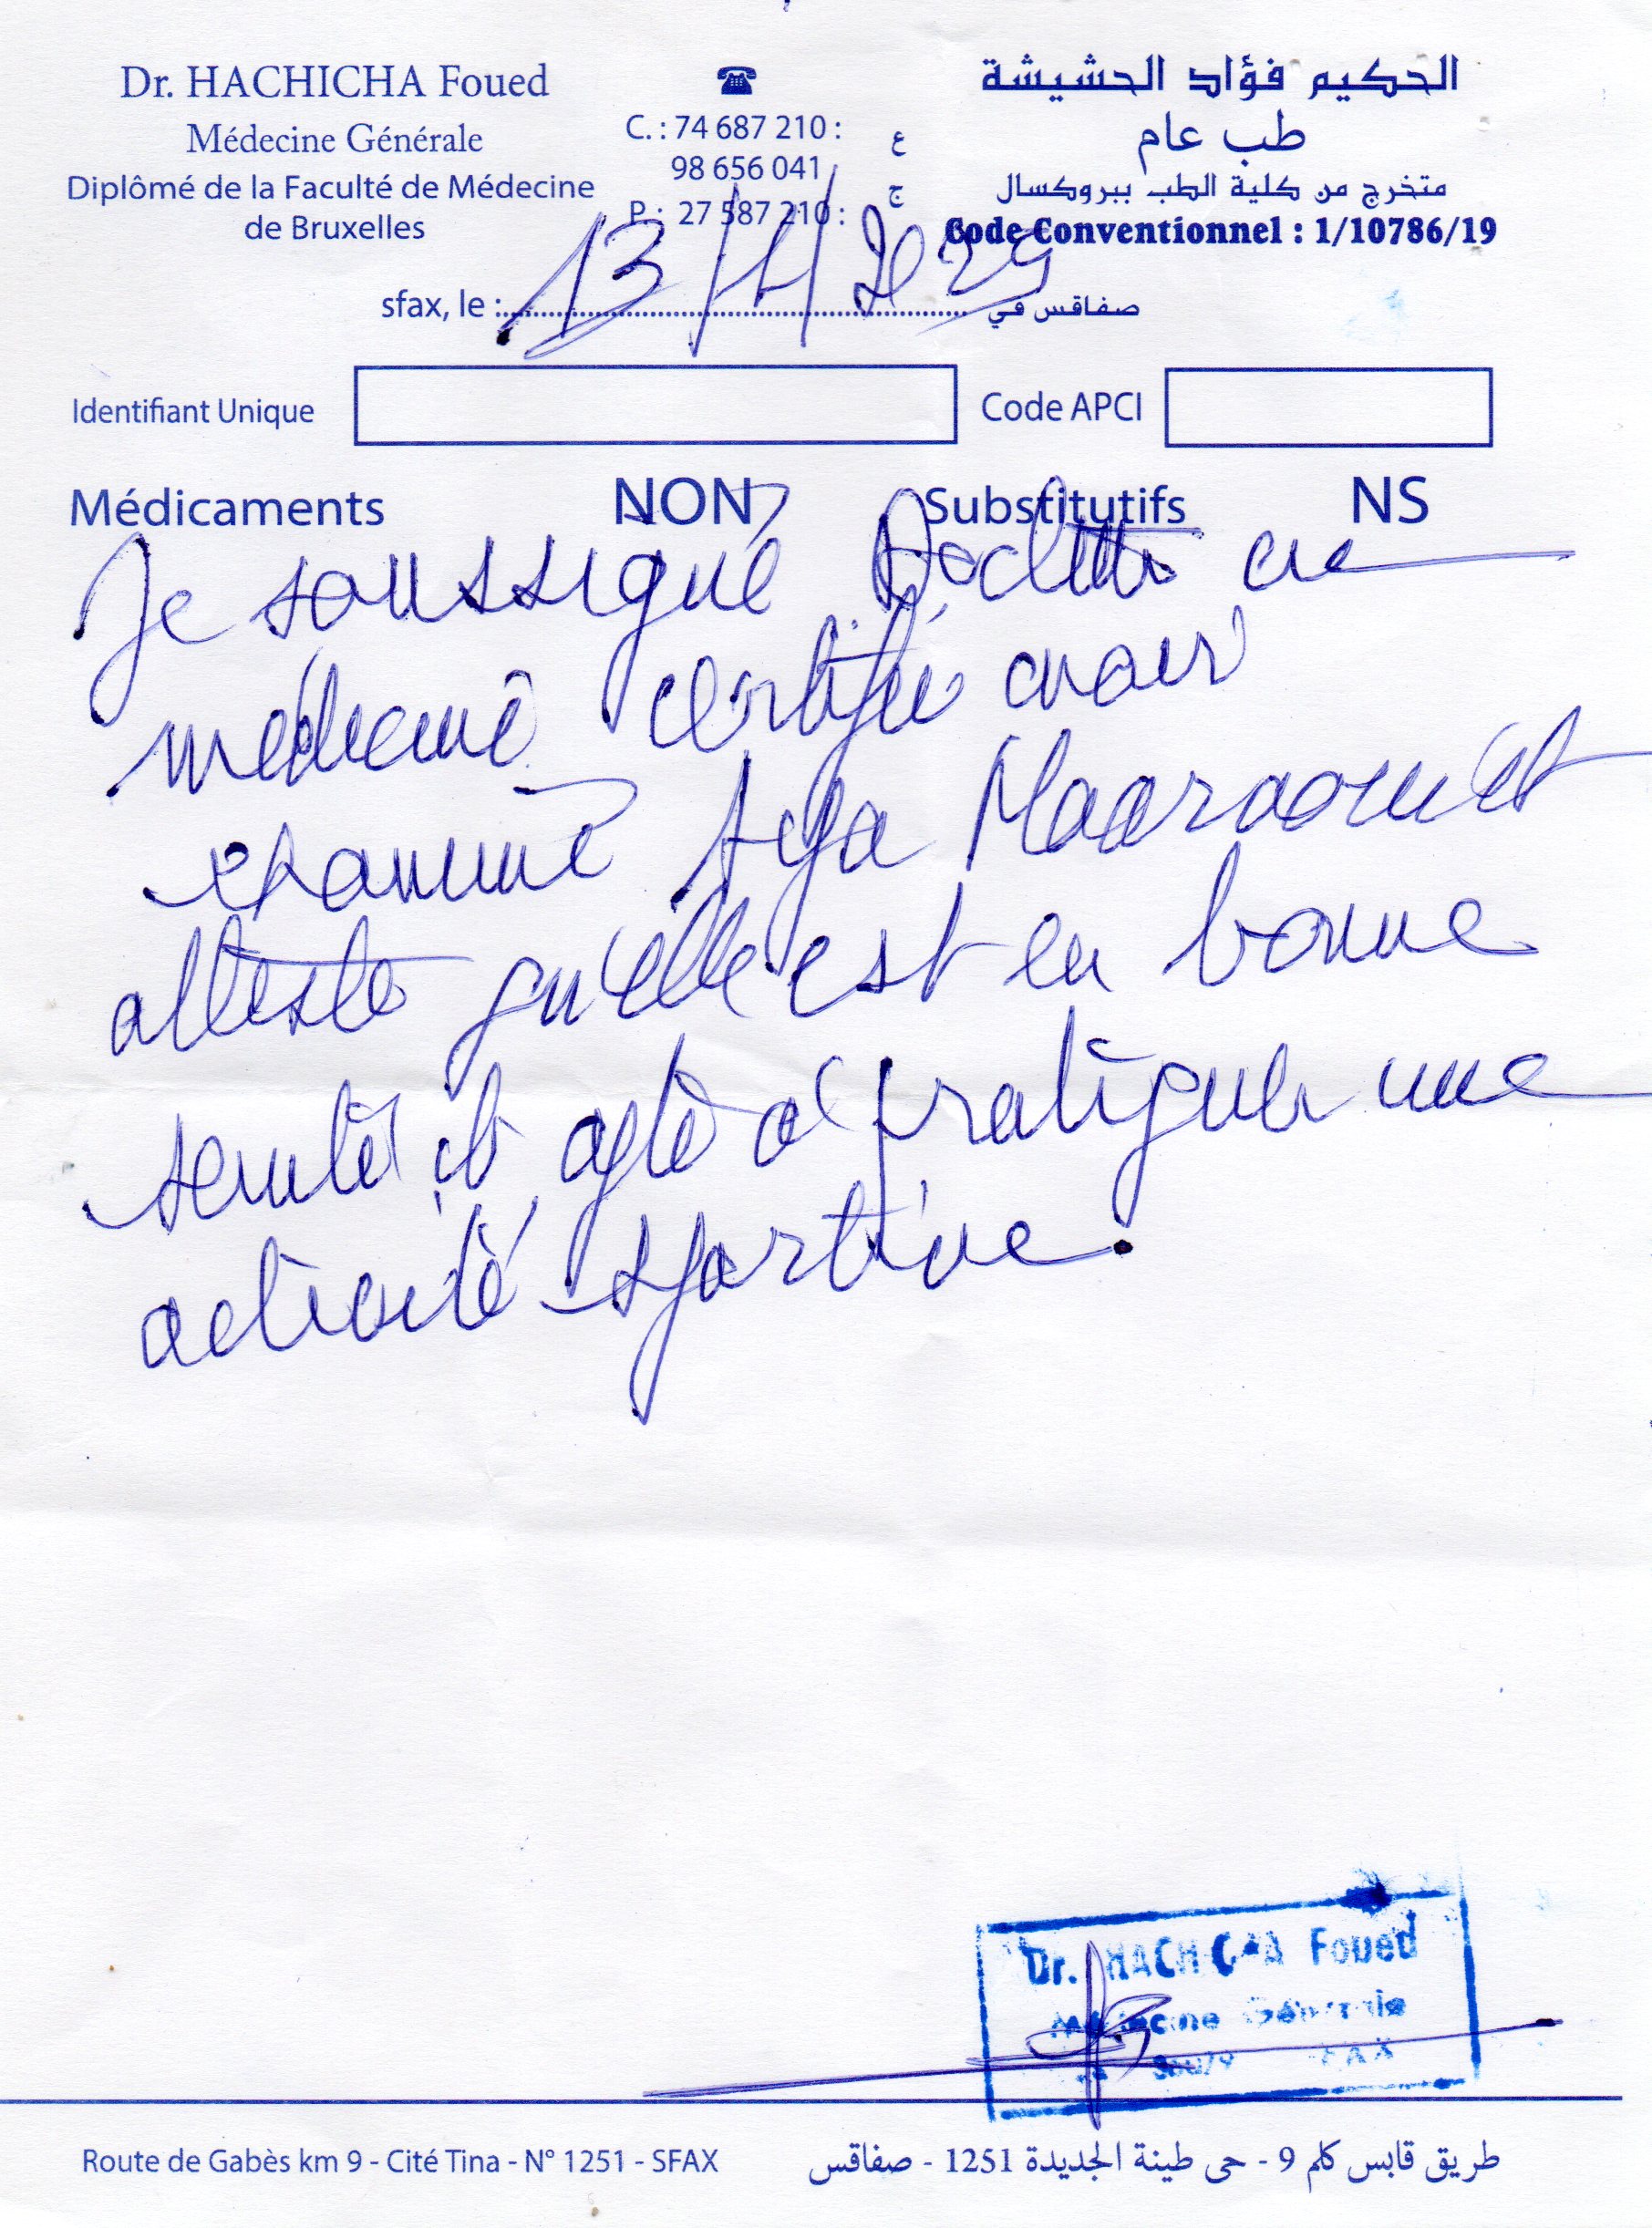 Dr. HACHICHA Foued
Médecine Générale
Diplômé de la Faculté de Médecine
de Bruxelles
C. : 74 687 210 : ع
98 656 041
P. : 27 587 210 : ج
الحكيم فؤاد الحشيشة
طب عام
متخرج من كلية الطب ببروكسال
Code Conventionnel : 1/10786/19
sfax, le : 13 / صفاقس في
Identifiant Unique Code APCI
Médicaments NON Substitutifs NS
Je soussigné Docteur en
médecine certifie avoir
examiné Aya et
atteste qu'elle est en bonne
santé et apte à pratiquer une
activité sportive.
Dr. HACHICHA Foued
Médecine Générale
SFAX
Route de Gabès km 9 - Cité Tina - N° 1251 - SFAX
طريق قابس كلم 9 - حي طينة الجديدة 1251 - صفاقس